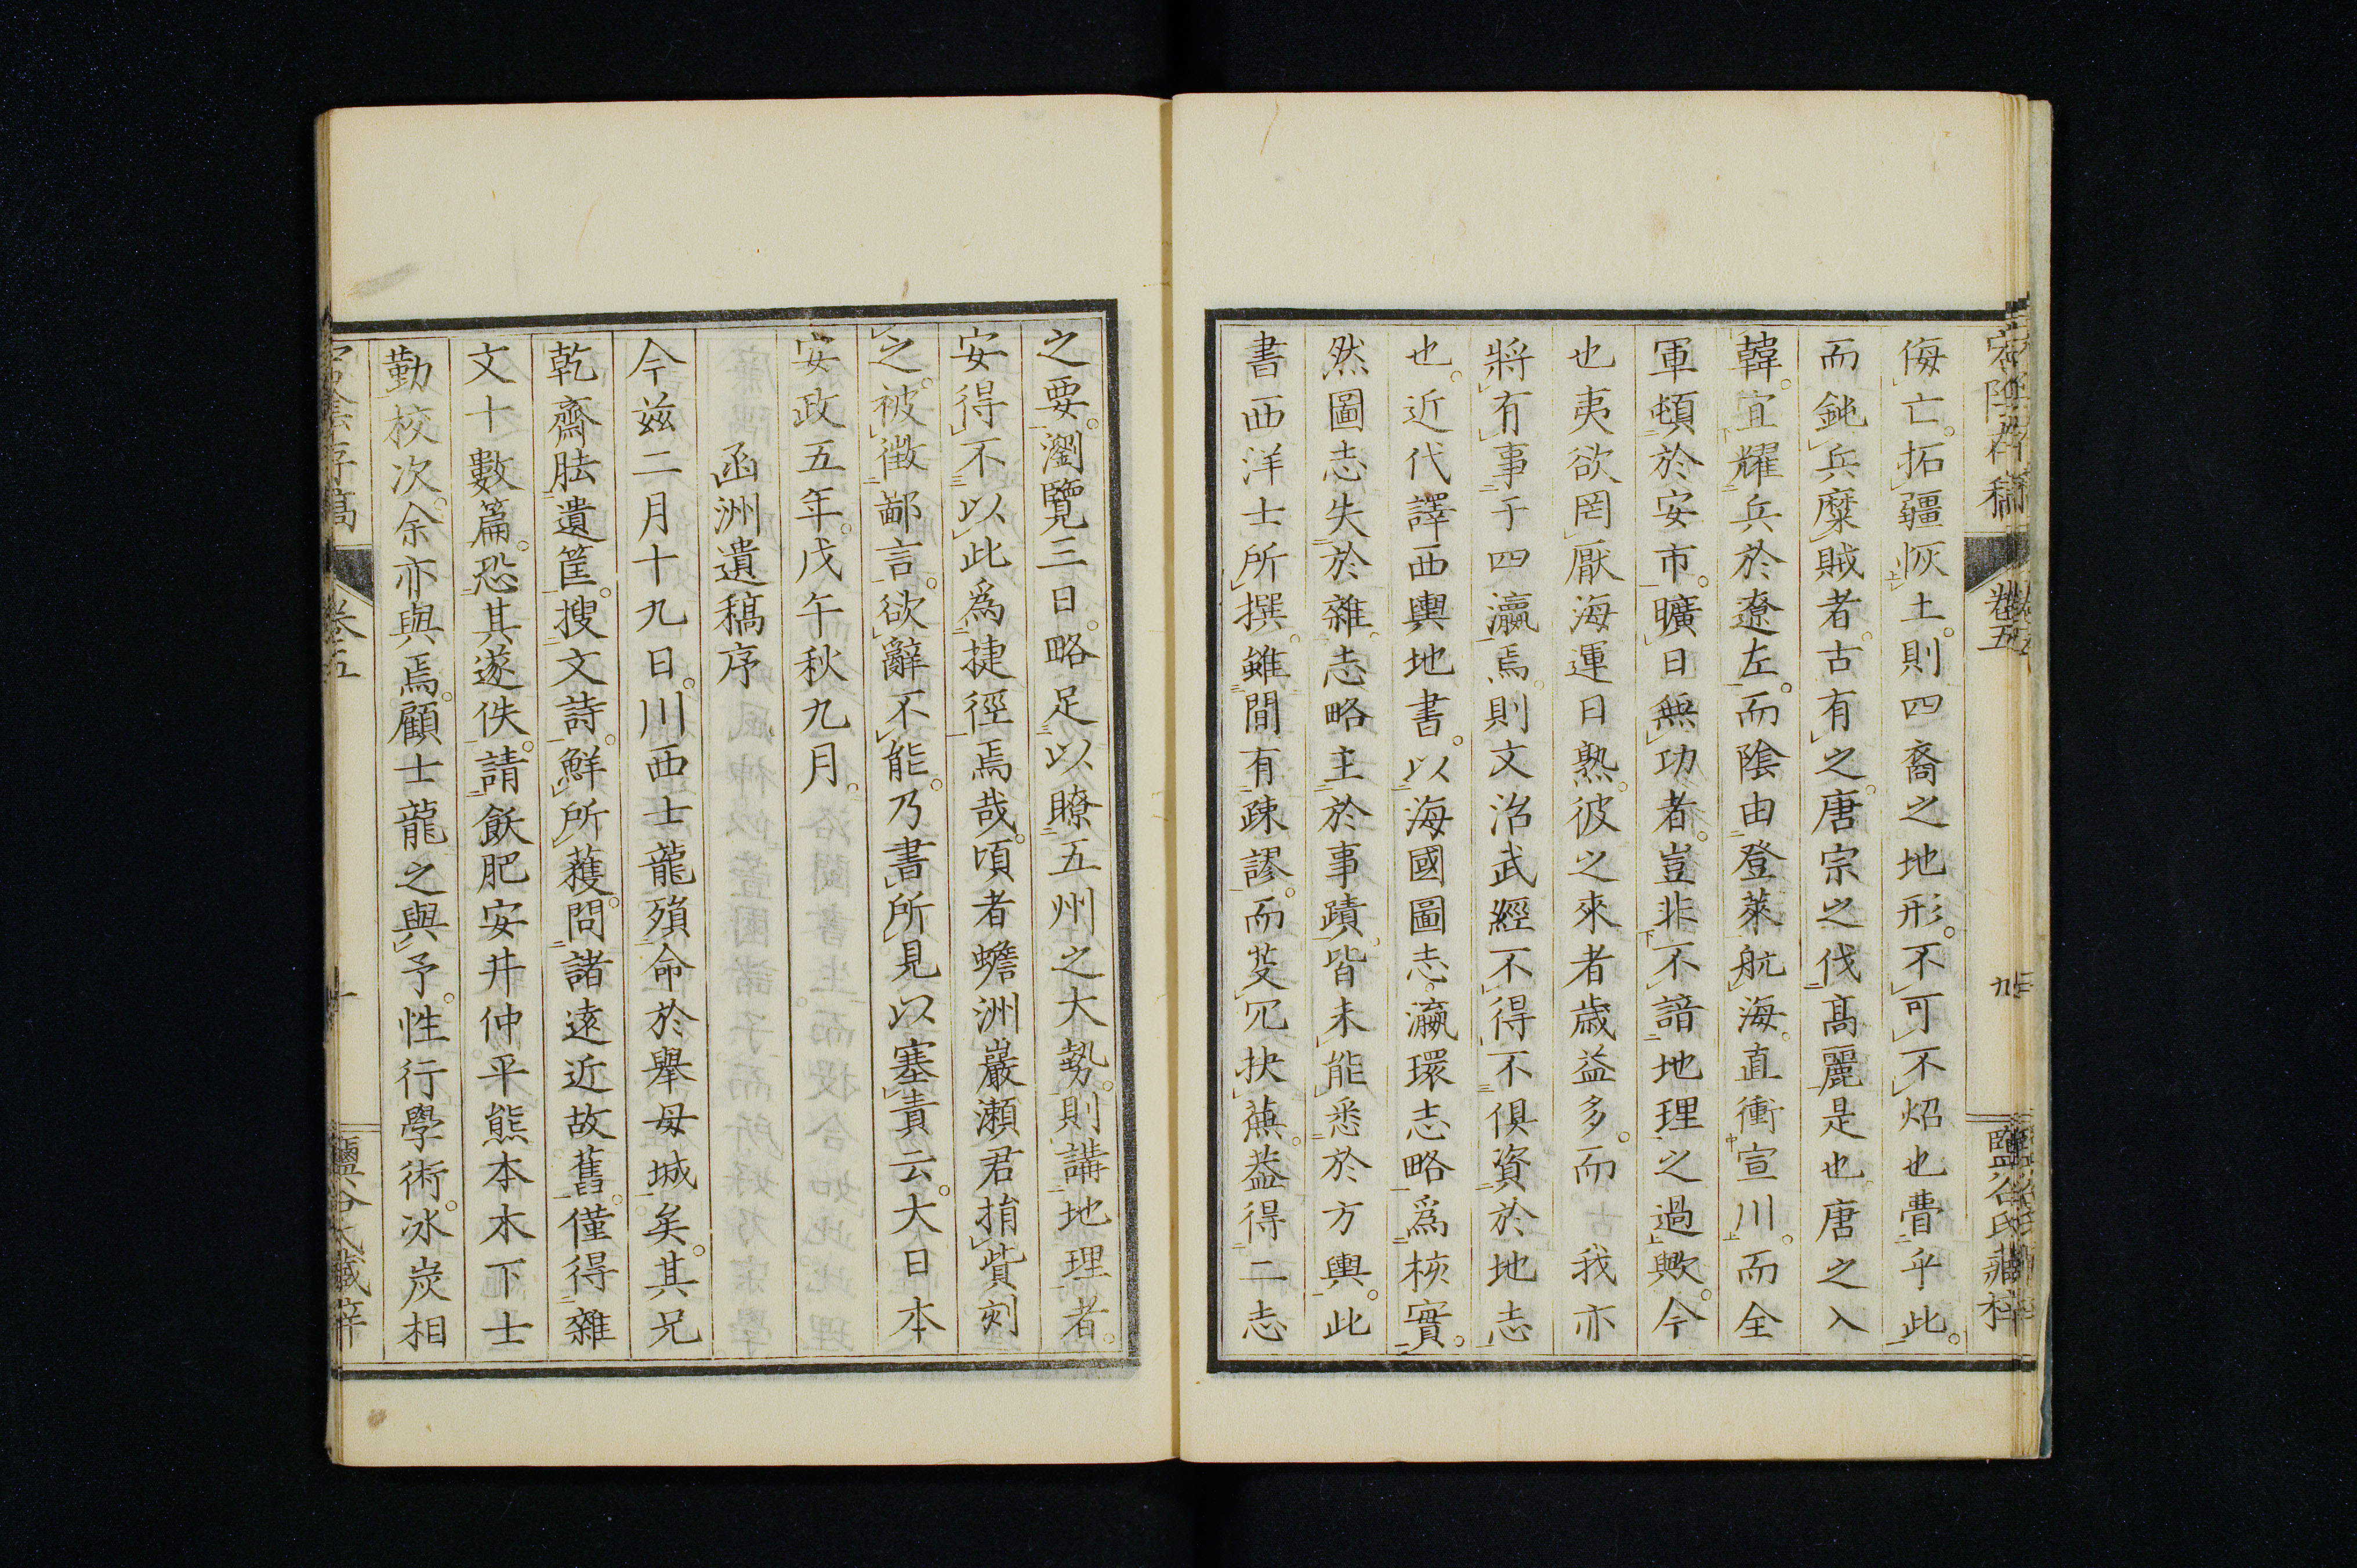 侮亡。拓疆恢土。則四裔之地形。不可不炤也。曹乎此。
而鈍兵糜賊者。古有之。唐宗之伐髙麗是也。唐之入
韓。宜耀兵於遼左。而陰由登萊航海。直衝宣川。而全
軍頓於安市。曠日無功者。豈非不諳地理之過歟。今
也夷欲罔厭海運日熟。彼之來者歲益多。而我亦
將有事于四瀛焉。則文治武經不得不俱資於地志
也。近代譯西輿地書。以海國圖志。瀛環志略為核實。
然圖志失於雜。志略主於事蹟。皆未能悉於方輿。此
書西洋士所撰。雖間有疎謬。而芟冗抉蕪。葢得二志
之要。瀏覽三日。略足以瞭五州之大勢。則講地理者。
安得不以此為捷徑焉哉。頃者蟾洲巖瀬君捐貲刻
之。被徵鄙言。欲辭不能。乃書所見以塞責云。大日本
安政五年。戊午秋九月。
函洲遺稿序
今茲二月十九日。川西士龍殞命於舉母城矣。其兄
乾齋胠遺筐。搜文詩。鮮所獲。問諸遠近故舊。僅得雜
文十數篇。恐其遂佚。請飫肥安井仲平熊本木下士
勤校次。余亦與焉。顧士龍之與予。性行學術。冰炭相
卷五
九
鹽谷氏藏梓